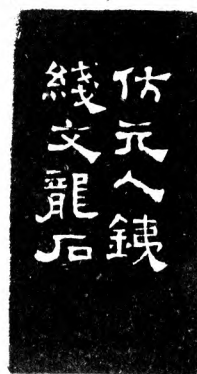 仿元人銕
綫文龍石